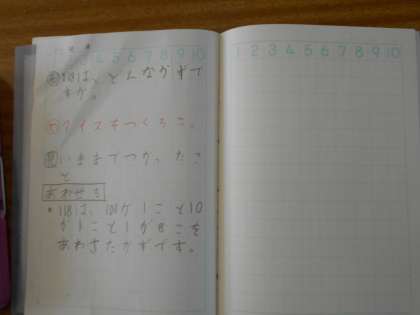 1 2 3 4 5 6 7 8 9 10
118は、どんなかずで
すか。
クイズをつくろう。
いままでつかったこ
と
あわせる
118は、100が1こと10
が1こと1が8こを
あわせたかずです。
1 2 3 4 5 6 7 8 9 10